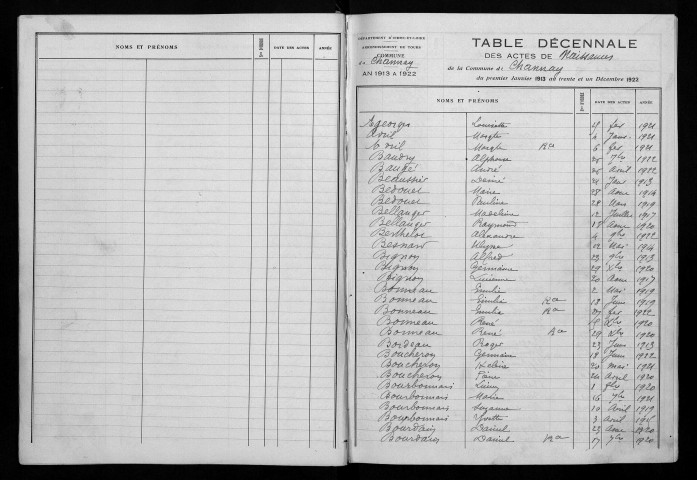 NOMS ET PRÉNOMS DATE DES ACTES ANNÉE
DÉPARTEMENT D'INDRE-ET-LOIRE
ARRONDISSEMENT DE TOURS
COMMUNE
de Channay
AN 1913 A 1922
TABLE DÉCENNALE
DES ACTES DE Naissances
de la Commune de Channay
du premier Janvier 1913 au trente et un Décembre 1922
NOMS ET PRÉNOMS DATE DES ACTES ANNÉE
Georges 1921
Avril 4 Janv 1921
Avril Rd 6 fev 1921
Baudry Alphonse 1922
Baugé André 26 avril 1922
Désiré Janv 1913
Bedouet Marie 1914
Bedouet Pauline 28 Mars 1919
Bellanger Madeleine 12 Juillet 1917
Bellanger Raymond 1920
Berthelot Alexandre 4 9bre 1922
Besnard 12 Mai 1914
Bignon Alfred 23 9bre 1913
Bignon Germaine 29 Xbre 1920
Bignon Lucienne 20 1917
Bonneau Emilia 2 1919
Bonneau Emilia Rd 13 Juin 1919
Bonneau Emilia Rd fev 1922
Bonneau René Xbre 1920
Bonneau René Rd 29 Xbre 1920
Bordeau Roger 23 Juin 1913
Boucheron Germaine 18 Juin 1922
Boucheron Hélène 20 mai 1921
Boucheron 24 avril 1920
Bourbonnais 1920
Bourbonnais 16 1921
Bourbonnais Suzanne 10 Avril 1919
Bourbonnais Yvette 3 avril
Bourdain Daniel 23 1920
Bourdain Daniel Rd 17 1920